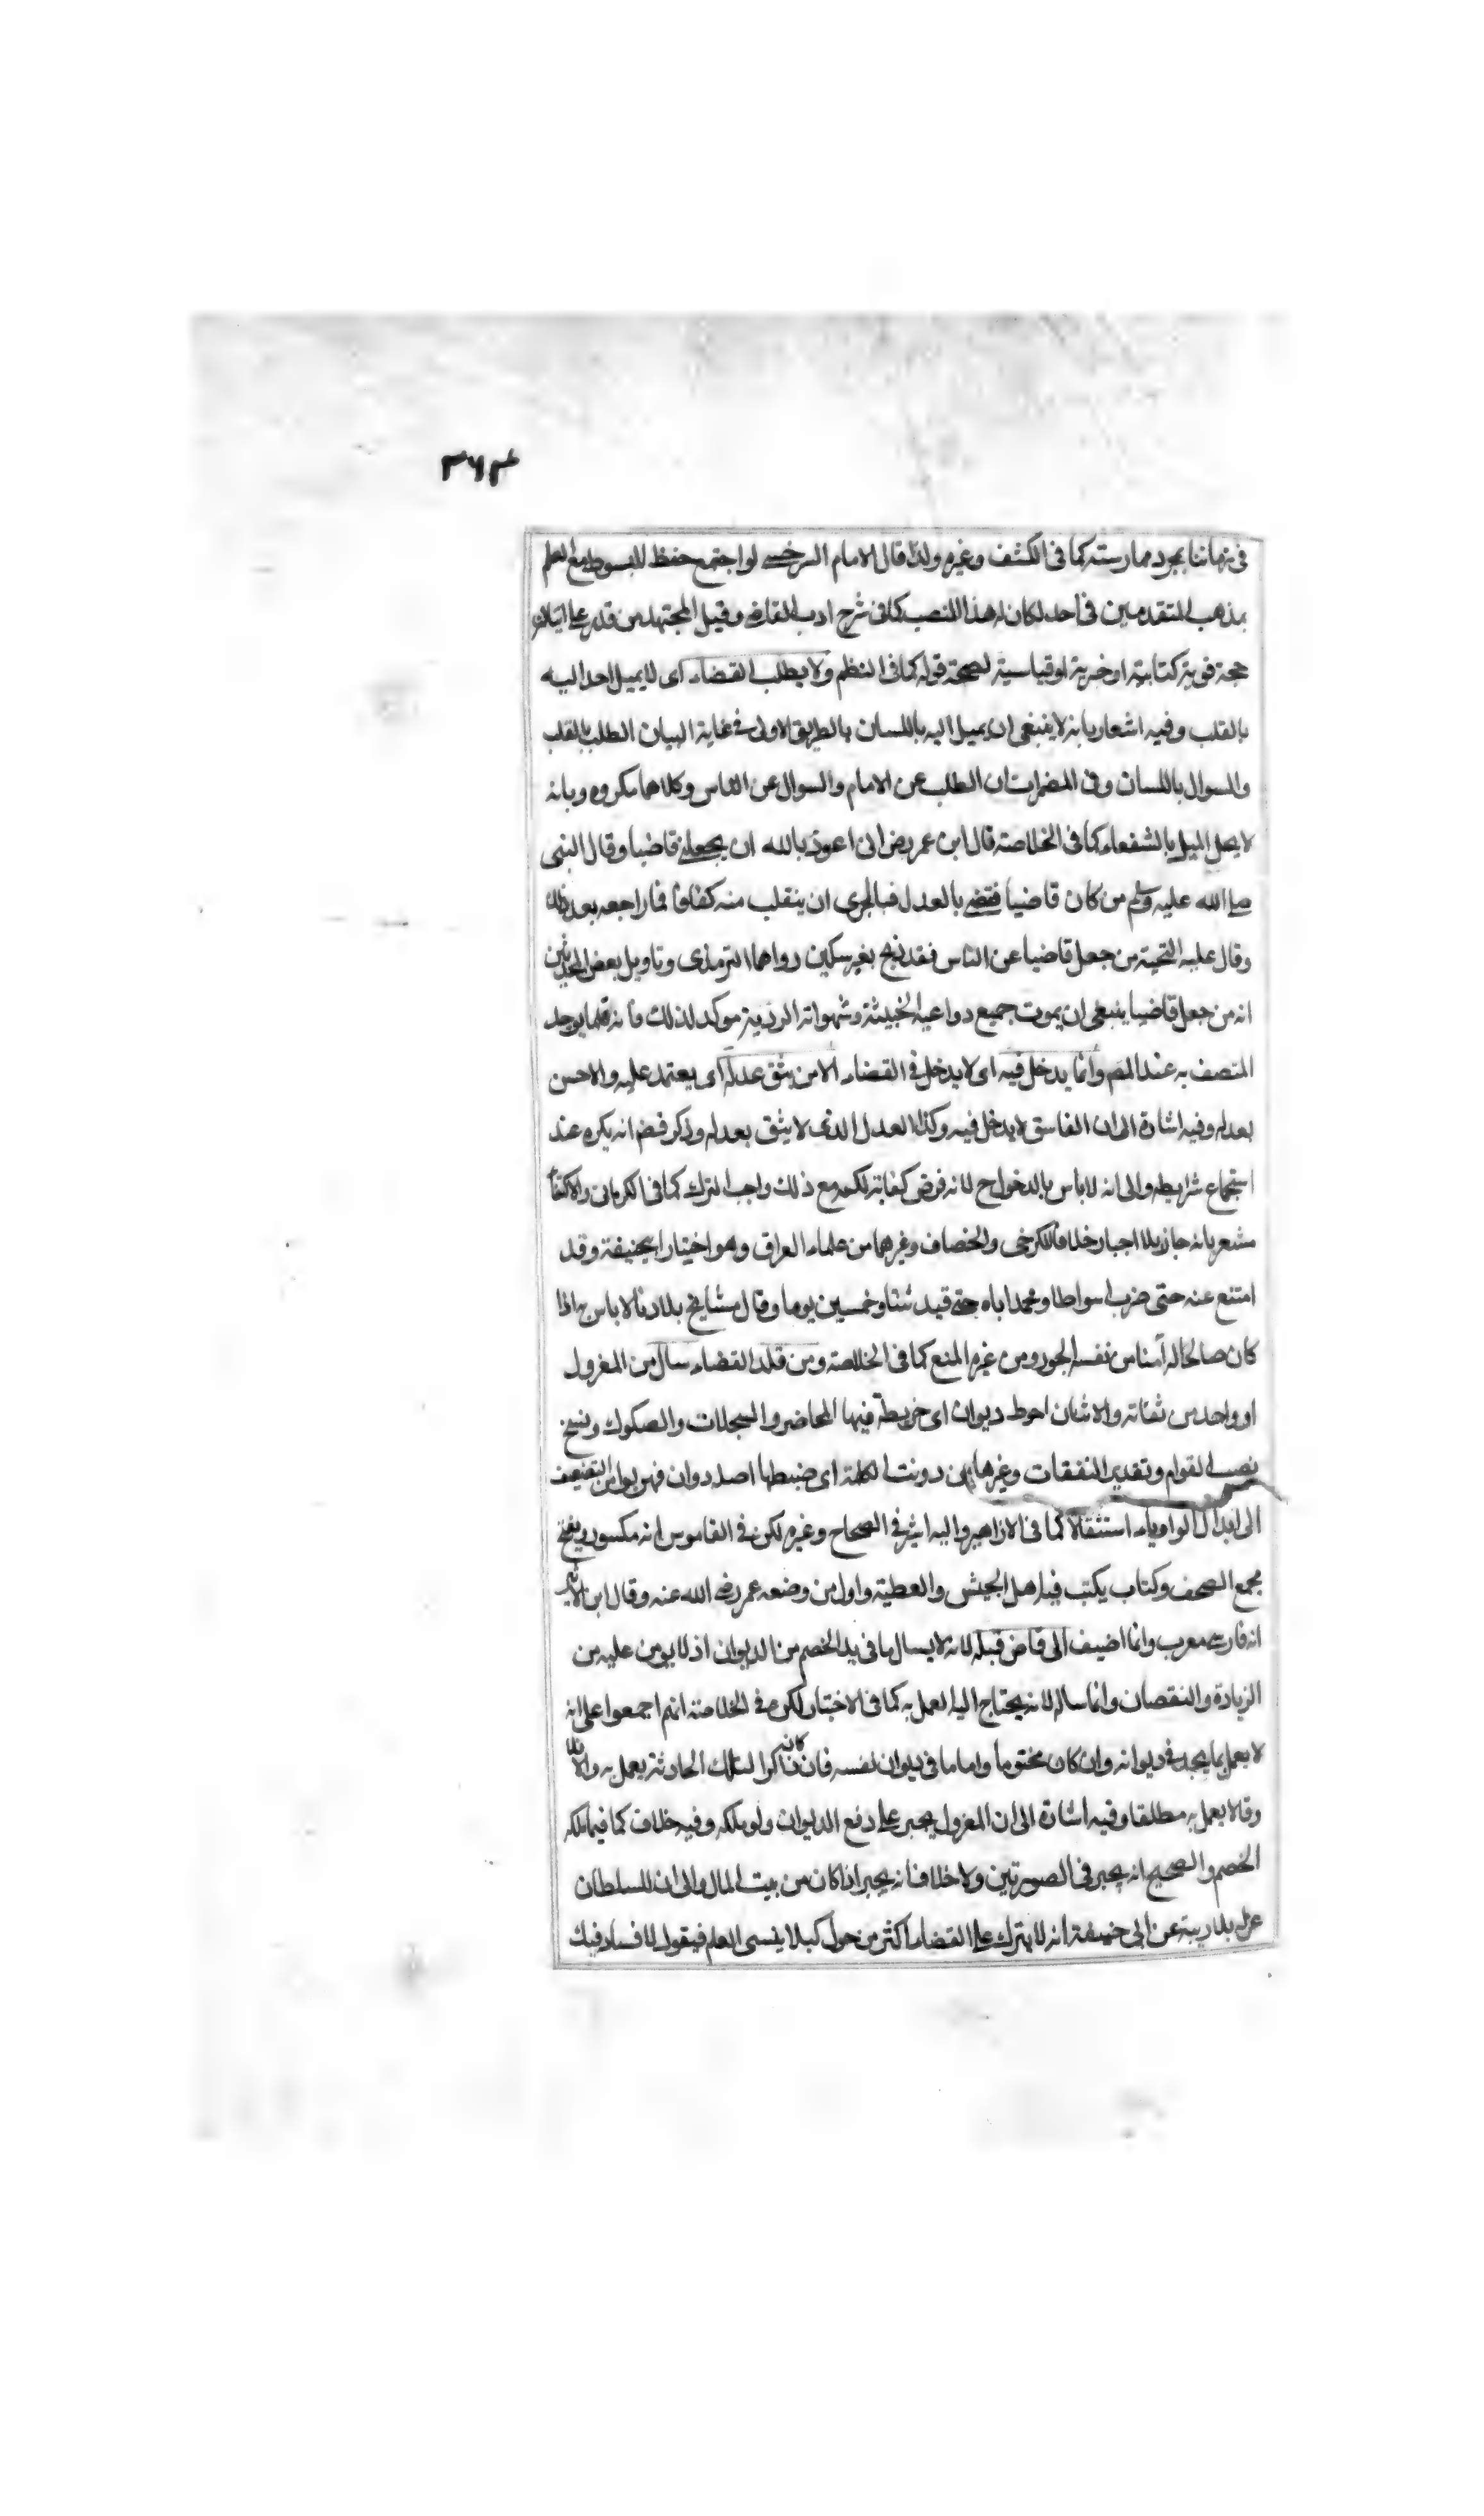 ٣٦٣
فى زماننا بمجرد ممارسته كما فى الكشف وغيره ولذا قال الامام السرخسى لو اجتمع حفظ المبسوط مع العلم
بمذهب المتقدمين فى احد لكان له هذا المنصب كما فى شرح ادب القاضى وقيل المجتهد من قدر على
حجة قوية كتابية او خبرية او قياسية لصحة قوله كما فى النظم ولا يطلب القضاء اى لا يميل احد اليه
بالقلب وفيه اشعار بانه لا ينبغى ان يميل اليه باللسان بالطريق الاولى فى غاية البيان الطلب بالقلب
والسوال باللسان وفى المضمرات ان الطلب عن الامام والسوال عن الناس وكلاهما مكروه وبانه
لا يصل الميل بالشفعاء كما فى الخلاصة قال ابن عمر رض انى اعوذ بالله ان يجعلنى قاضيا وقال النبى
صلى الله عليه وسلم من كان قاضيا فقضى بالعدل فبالحرى ان ينقلب منه كفافا فما راجعه بعد ذلك
وقال عليه التحية من جعل قاضيا عن الناس فقد ذبح بغير سكين رواهما الترمذى وتاويل بعض المحدثين
انه من جعل قاضيا ينبغى ان يموت جميع دواعيه الخبيثة وشهواته الردية موكد لذلك فانه قلما يوجد
المتصف به عند المص وانما يدخل فيه اى لا يدخل فى القضاء الا من يثق عدله اى يعتمد عليه والاحسن
بعدله وفيه اشارة الى ان الفاسق لا يدخل فيه وكذا العدل الذى لا يثق بعدله وذكر فضم انه يكره عند
استجماع شرايطه والى انه لا باس بالدخول ح لانه فرض كفاية لكنه مع ذلك واجب الترك كما فى الكرمانى والاكتفاء
مشعر بانه جاز بلا اجبار خلافا للكرخى والخصاف وغيرهما من علماء العراق وهو اختيار ابى حنيفة وقد
امتنع عنه حتى ضرب اسواطا ومحمد اباه حتى قيد نيفا وخمسين يوما وقال مشايخ بلادنا لا باس به اذا
كان صالحا له آمنا من نفسه الجور ومن غيره المنع كما فى الخلاصة ومن قلد القضاء سال من المعزول
او واحد من ثقاته والاثنان احوط ديوان اى خريطة فيها المحاضر والسجلات والصكوك ونسخ
نصب القوام وتقدير النفقات وغيرها من دونت الكلمة اى ضبطها اصله دوان فهربوا من التضعيف
الى ابدال الواو ياء استثقالا كما فى الازاهير واليه اشير فى الصحاح وغيره لكن فى القاموس انه مكسور ويفتح
مجمع الصحف وكتاب يكتب فيه اهل الجيش والعطية واول من وضعه عمر رضى الله عنه وقال ابن الاثير
انه فارسى معرب وانما اضيف الى قاض قبله لانه لا يسال ما فى يد الخصم من الديوان اذ لا يومن عليه من
الزيادة والنقصان وانما ساله لانه يحتاج اليه العمل به كما فى الاختيار لكن فى الخلاصة انهم اجمعوا على انه
لا يعمل بما يجد فى ديوانه وان كان مختوما واما ما فى ديوان نفسه فان كان ذاكرا لتلك الحادثة يعمل به والا فلا
وقالا يعمل به مطلقا وفيه اشارة الى ان المعزول يجبر على دفع الديوان ولو ملكه وفيه خلاف كما فيما ملكه
الخصم والصحيح انه يجبر فى الصورتين ولا خلاف انه يجبر اذا كان من بيت المال والى ان للسلطان
عزله بلا ريبة عن ابى حنيفة انه لا يترك على القضاء اكثر من حول كيلا ينسى العلم فيقول لا فساد فيك